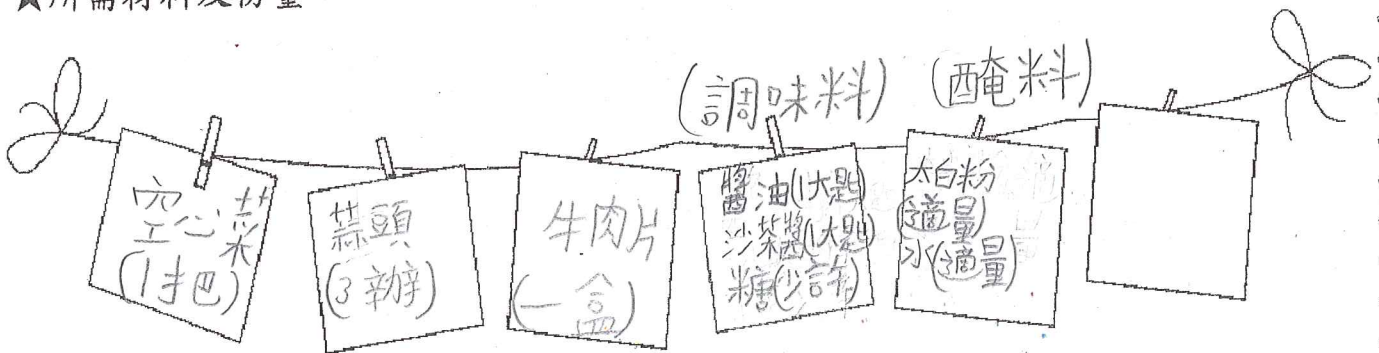 ★所需材料及份量
(調味料)
(醃料)
空心菜
(1把)
蒜頭
(3辦)
牛肉片
(一盒)
醬油(1大匙)
沙茶醬(1大匙)
糖(少許)
太白粉
(適量)
水(適量)